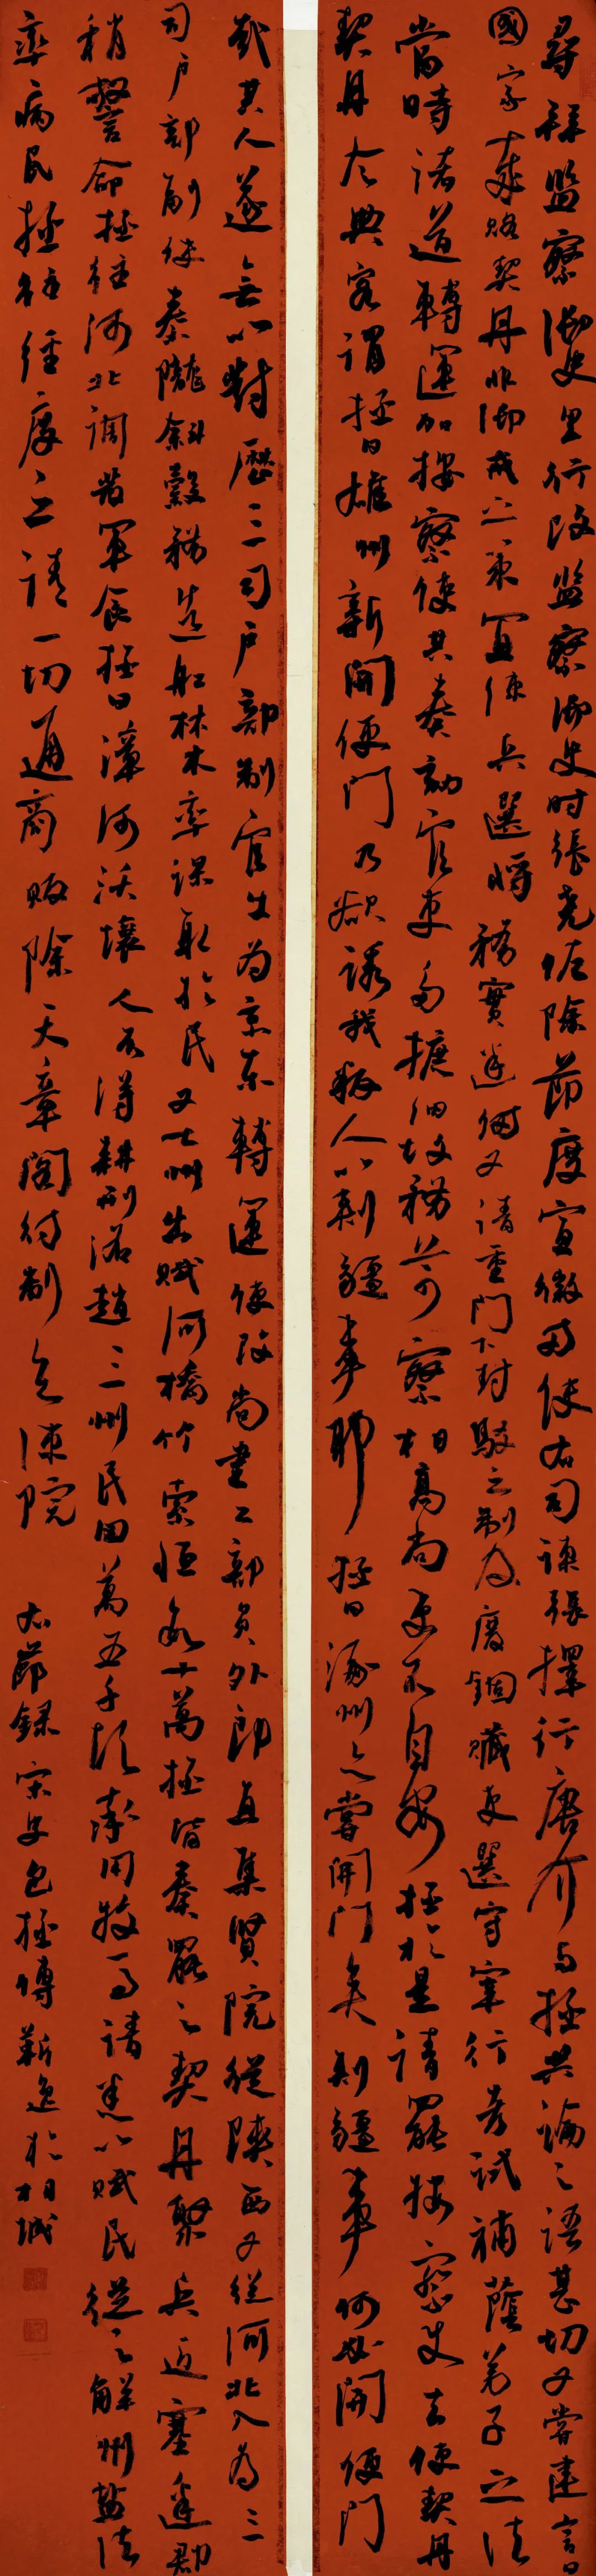 尋拜監察御史里行改監察御史時張堯佐除節度宣徽兩使右司諫張擇行唐介與拯共論之語甚切又嘗建言曰
國家歲賂契丹非御戎之策宜練兵選將務實邊備又請重門下封駁之制及廢錮贓吏選守宰行考試補蔭弟子之法
當時諸道轉運加按察使其奏劾官吏多摭細故務苛察相高尚吏不自安拯於是請罷按察使去使契丹
契丹令典客謂拯曰雄州新開便門乃欲誘我叛人以刺疆事耶拯曰涿州亦嘗開門矣刺疆事何必開便門
哉其人遂無以對歷三司戶部判官出為京東轉運使改尚書工部員外郎直集賢院從陝西又從河北入為三
司戶部副使秦隴斜穀務造船材木率課取於民又七州出賦河橋竹索恒數十萬拯皆奏罷之契丹聚兵近塞邊郡
稍警命拯往河北調發軍食拯曰漳河沃壤人不得耕邢洺趙三州民田萬五千頃率用牧馬請悉以賦民從之解州鹽法
率病民拯往經度之請一切通商販除天章閣待制知諫院
右節錄宋史包拯傳 逸於相城